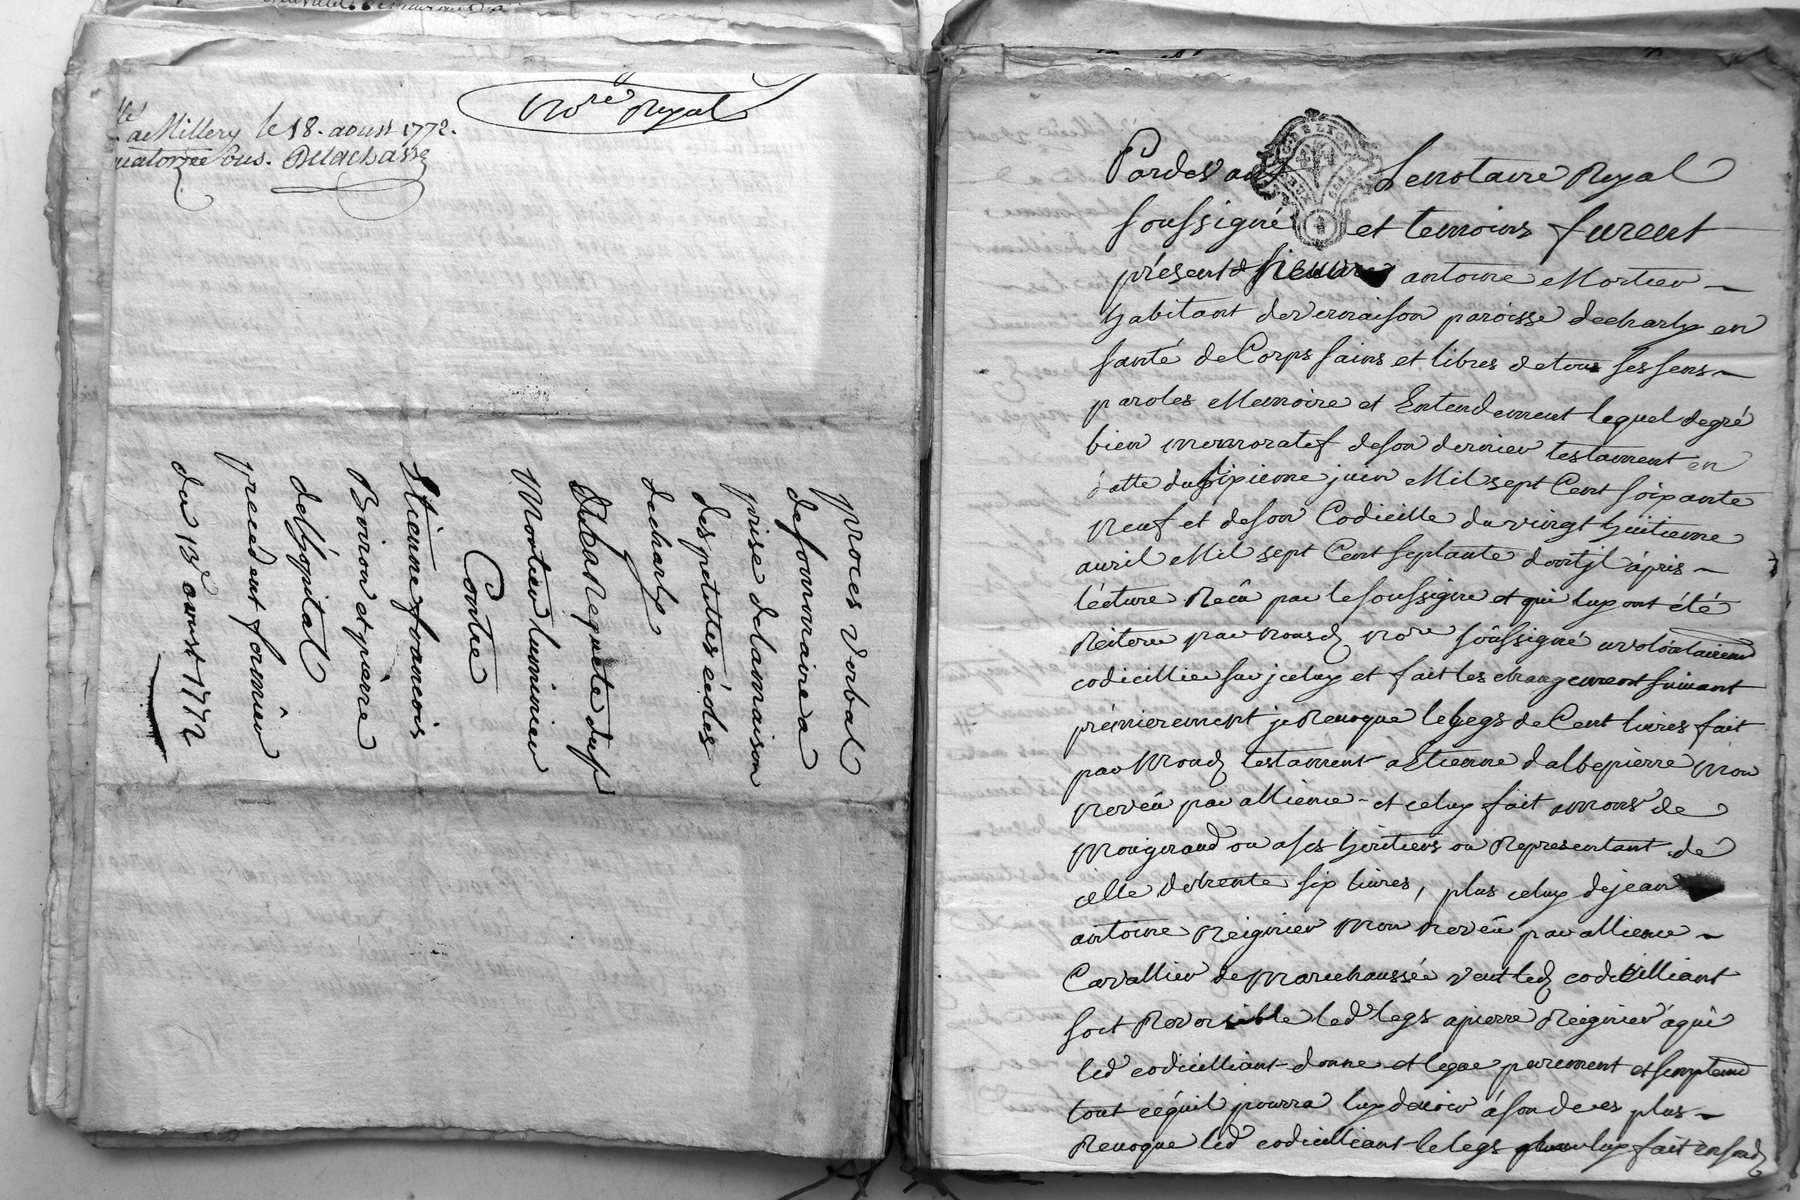 de Millery le 18. aoust 1772.
quatorze sous. Delachasse
No.re Royal
proces verbal
de sommaire a
prise de la maison
des petittes écoles
de charly
Dela Requete du sr
Mortier luminier
Contre
Etienne francois
Boiron et pierre
delhopital
precedent fermier
du 13 aoust 1772
Pardevant Le notaire Royal
soussigné et temoins furent
présent sieur antoine Mortier
habitant de vernaison paroisse de charly en
santé de Corps sains et libres de tous ses sens
paroles Memoire et Entendement lequel de gré
bien memoratif de son dernier testament en
datte du sixieme juin Mil sept Cent soixante
Neuf et de son Codicille du vingt huitieme
avril Mil sept Cent septante dont jl apris
lécture Reçu par le soussigné et qui luy ont été
Reiteré par nousd. no.re soussigné a volontairemt
codicillier sur jceluy et fait les changement suivant
prémierement je Revoque le legs de Cent livres fait
par Mond. testament a Etienne dalbepierre Mon
Neveu par allience et celuy fait a mons.r de
Mongiraud ou a ses héritiers ou Representant de
celle de trente six livres, plus celuy de jean
antoine Reignier Mon neveu par allience
Cavallier de Marechaussée veut led. codicilliant
soit Reversible led. legs a pierre Reignier a qui
led. codicilliant donne et legue purement et simplemt
tout ce quil pourra luy devoir à son deces plus
Revoque led. codicilliant le legs luy fait en sond.